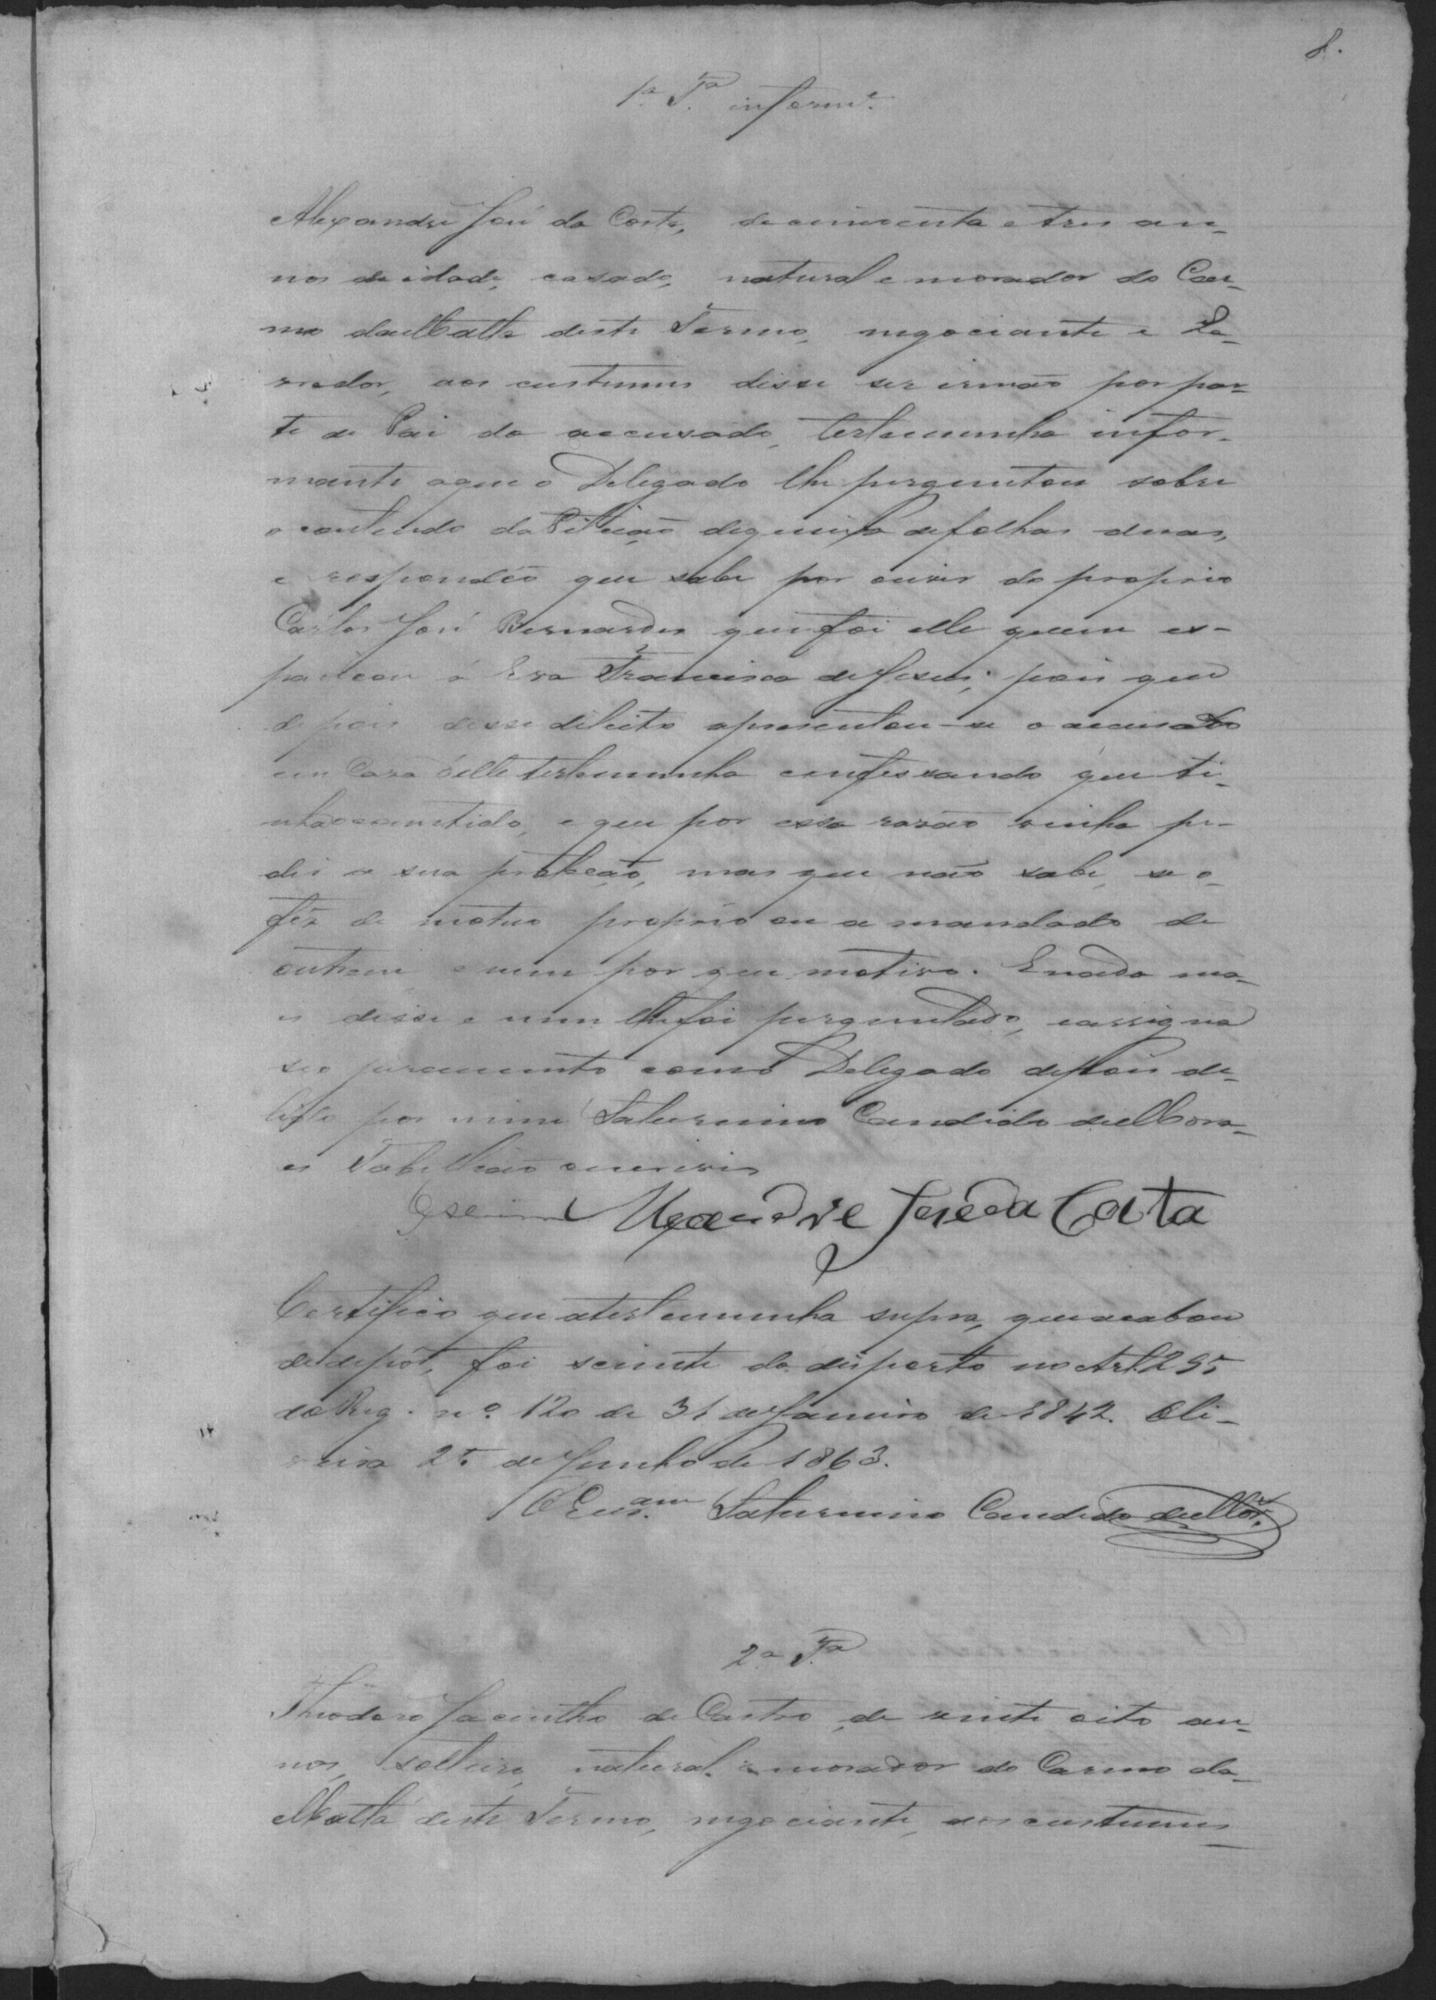 8.
1.ª T.ª inform.e
Alexandre José da Costa, de cincoenta e tres an-
nos de idade, casado, natural e morador do Car-
mo da Matta deste Termo, negociante e La-
vrador, aos custumes disse ser irmão por par-
te de Pai do accusado, testemunha infor-
mante a que o Delegado lhe perguntou sobre
o contiudo da Petição de queixa de folhas duas,
e respondeo que sabe por ouvir do proprio
Carlos José Bernardes que foi elle quem es-
pancou á Eva Francisca de Jesus; pois que
depois desse dilicto apresentou-se o accusado
em Casa delle testemunha confessando que ti-
nha comettido, e que por essa rasão vinha pe-
dir a sua proteção, mas que não sabe, se o
fez de motuo proprio ou a mandado de
outrem e nem por que motivo. E nada ma-
is disse e nem lhe foi perguntado, e assigna
seo juramento com o Delegado depois de
lido por mim Saturnino Candido de Mora-
es Tabellião o escrevi
Alexandre José da Costa
Certifico que a testemunha supra, que acabou
de depôr, foi sciente do disposto no Art. 295
do Reg. nº 120 de 31 de Janeiro de 1842. Oli-
veira 25 de Junho de 1863.
O Escr.am Saturnino Candido de Mor.s
2.ª T.ª
Theodoro Jacintho de Castro, de vinte oito an-
nos, solteiro, natural e morador do Carmo da
Matta deste Termo, negociante, aos custumes